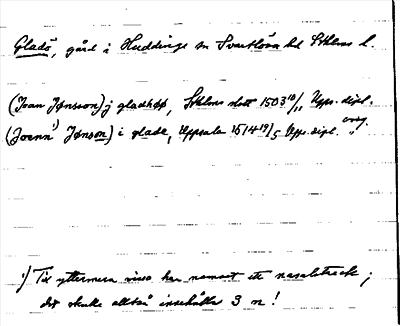 Gladö, gård i Huddinge sn Svartlösa hd Sthlms l.
(Ivan Jønsson) j gladhøø, Sthlms slott 1503 10/11 Upps. dipl.
(Joann¹⁾ Jønson) i glade, Uppsala 1514 19/5 Upps. dipl. orig.
¹⁾ Till yttermera visso har namnet ett nasalstreck;
det skulle alltså innehålla 3 n!